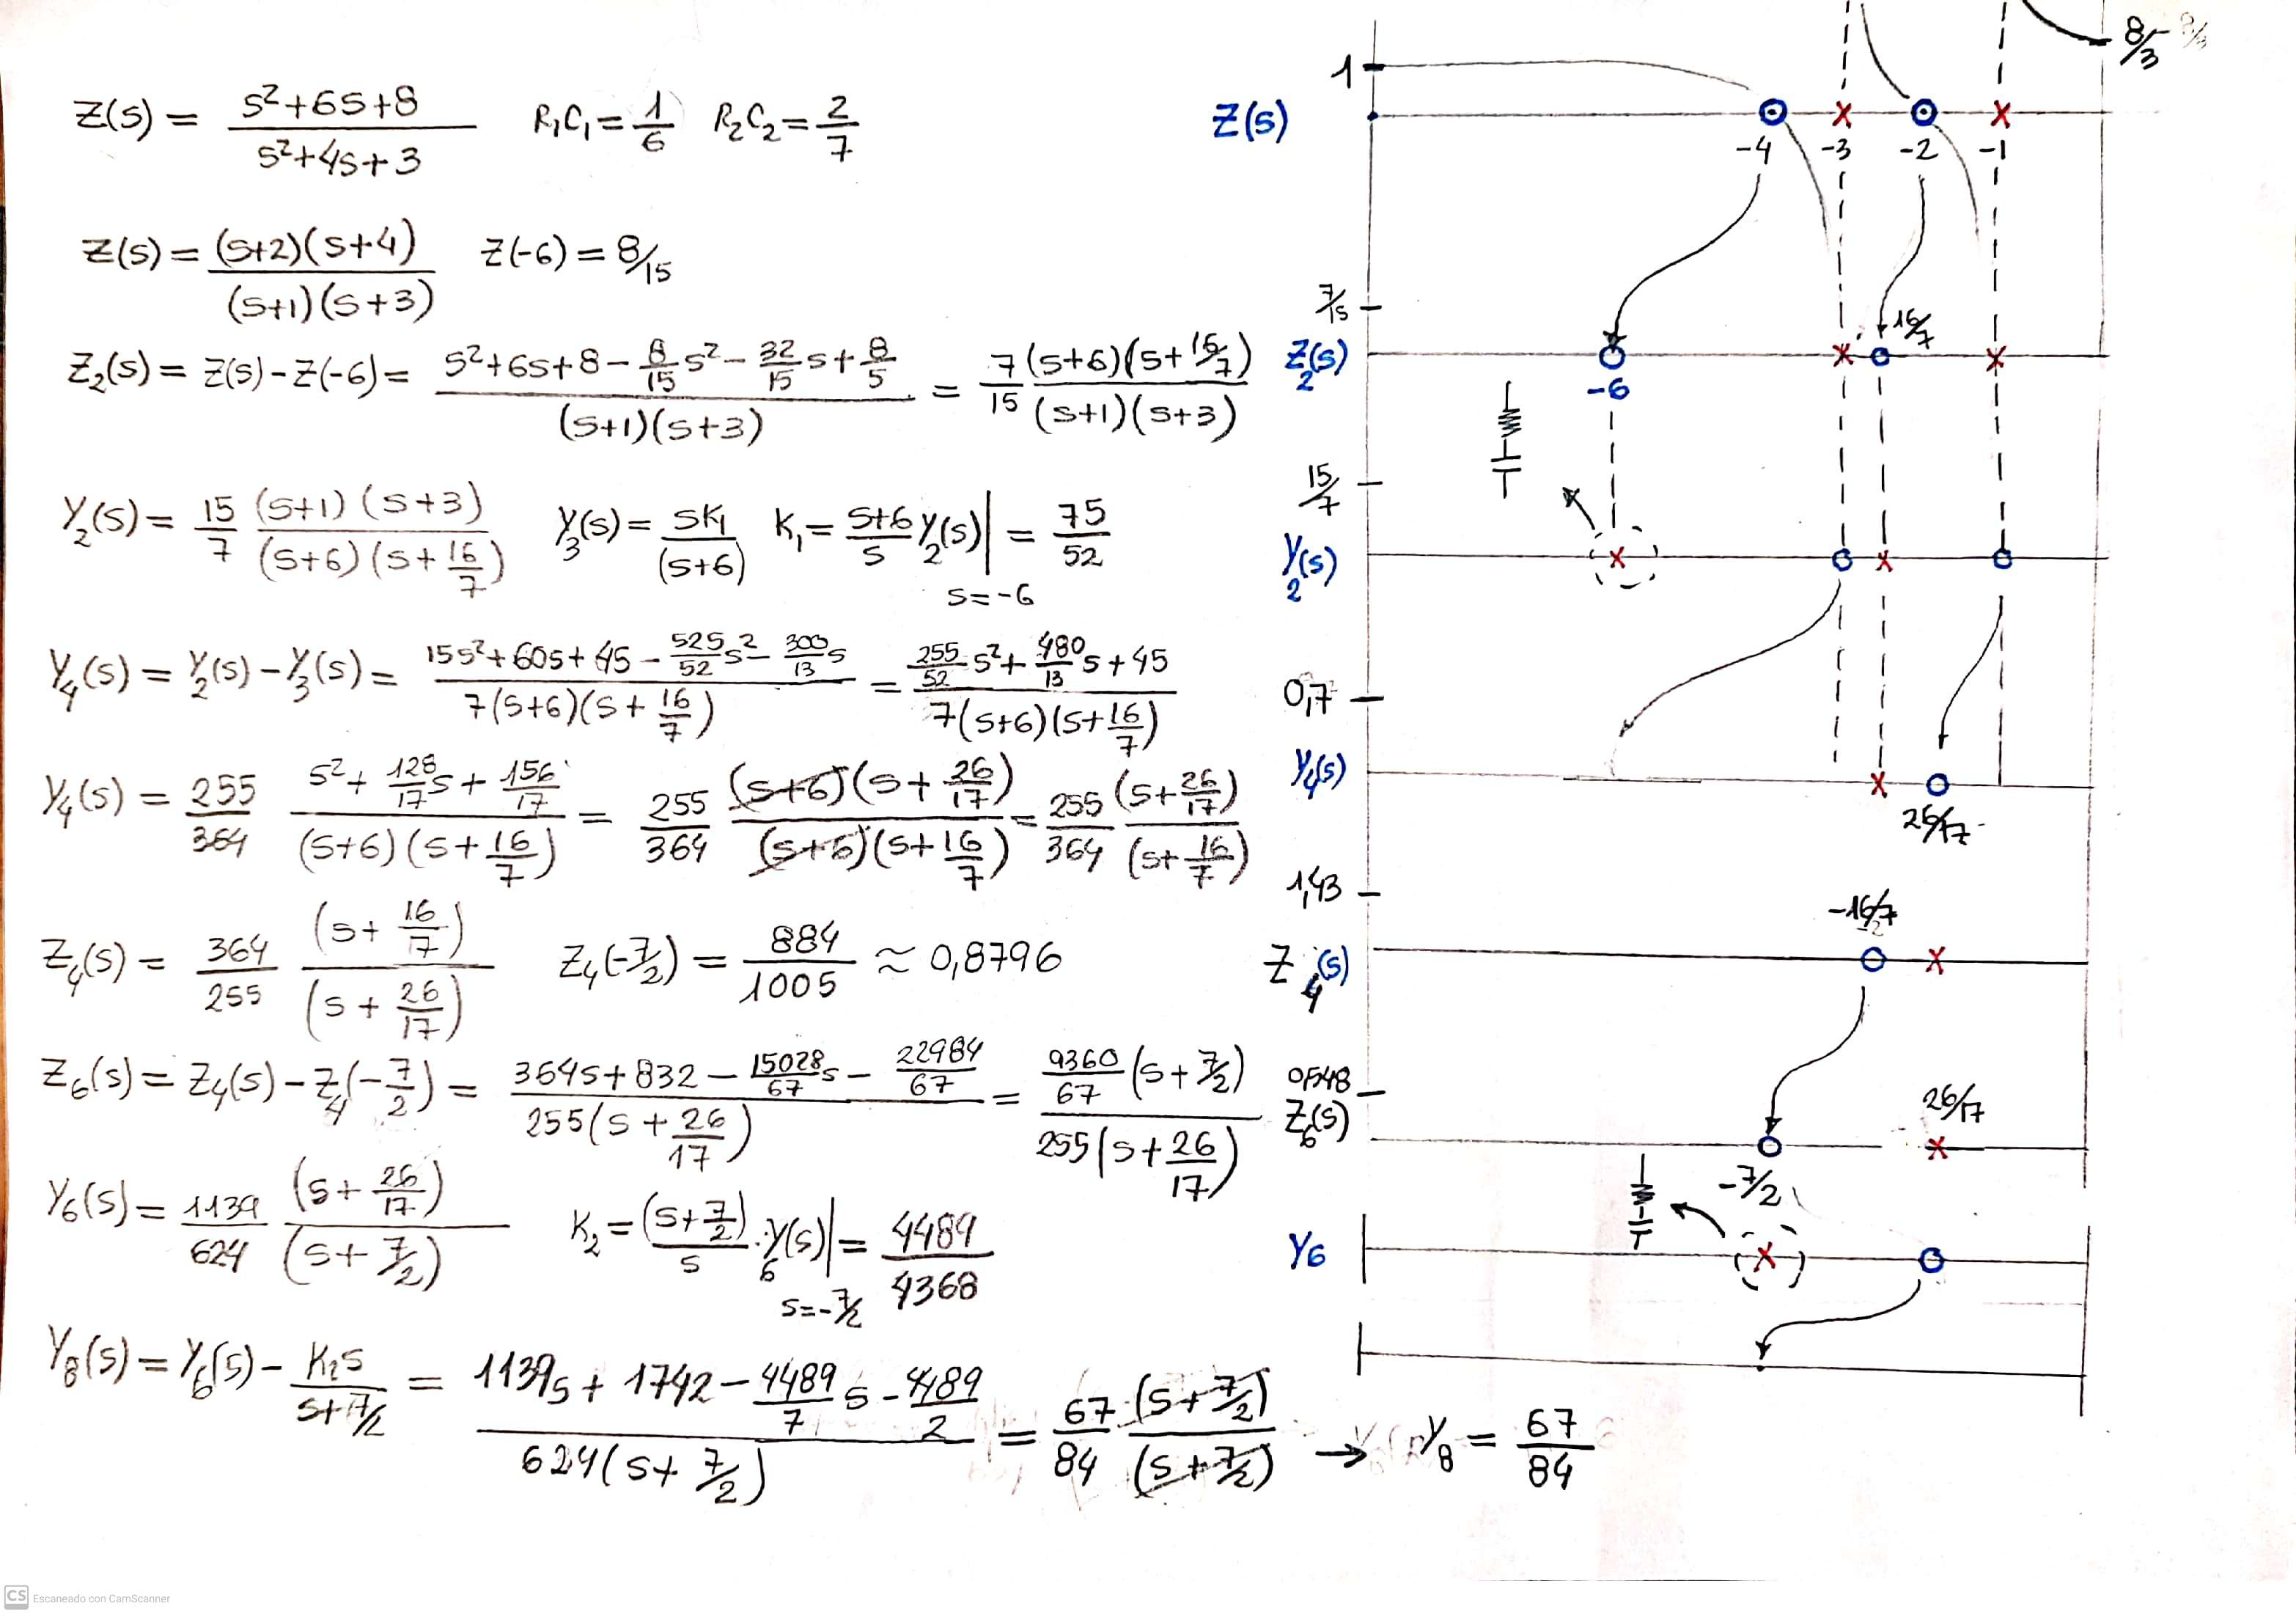 Z(s) = (s²+6s+8)/(s²+4s+3)   R₁C₁ = 1/6   R₂C₂ = 2/7
Z(s) = (s+2)(s+4)/(s+1)(s+3)   Z(-6) = 8/15
Z₂(s) = Z(s) - Z(-6) = (s²+6s+8 - 8/15 s² - 32/15 s + 8/5)/(s+1)(s+3) = 7/15 (s+6)(s+16/7)/(s+1)(s+3)
Y₂(s) = 15/7 (s+1)(s+3)/(s+6)(s+16/7)   Y₃(s) = sK₁/(s+6)   K₁ = (s+6)/s Y₂(s)| s=-6 = 75/52
Y₄(s) = Y₂(s) - Y₃(s) = (15s²+60s+45 - 525/52 s² - 300/13 s)/7(s+6)(s+16/7) = (255/52 s² + 480/13 s + 45)/7(s+6)(s+16/7)
Y₄(s) = 255/364 (s² + 128/17 s + 156/17)/(s+6)(s+16/7) = 255/364 (s+6)(s+26/17)/(s+6)(s+16/7) = 255/364 (s+26/17)/(s+16/7)
Z₄(s) = 364/255 (s+16/7)/(s+26/17)   Z₄(-7/2) = 884/1005 ≈ 0,8796
Z₆(s) = Z₄(s) - Z₄(-7/2) = (364s+832 - 15028/67 s - 22984/67)/255(s+26/17) = 9360/67 (s+7/2)/255(s+26/17)
Y₆(s) = 1139/624 (s+26/17)/(s+7/2)   K₂ = (s+7/2)/s · Y₆(s)| s=-7/2 = 4489/4368
Y₈(s) = Y₆(s) - K₂s/(s+7/2) = (1139s + 1742 - 4489/7 s - 4489/2)/624(s+7/2) = 67/84 (s+7/2)/(s+7/2) → Y₈ = 67/84
8/3
1
Z(s)
-4 -3 -2 -1
7/15
16/7
Z₂(s)
-6
15/7
Y₂(s)
0,7
Y₄(s)
26/17
1,43
-16/7
Z₄(s)
0,548
26/17
Z₆(s)
-7/2
Y6
CS Escaneado con CamScanner